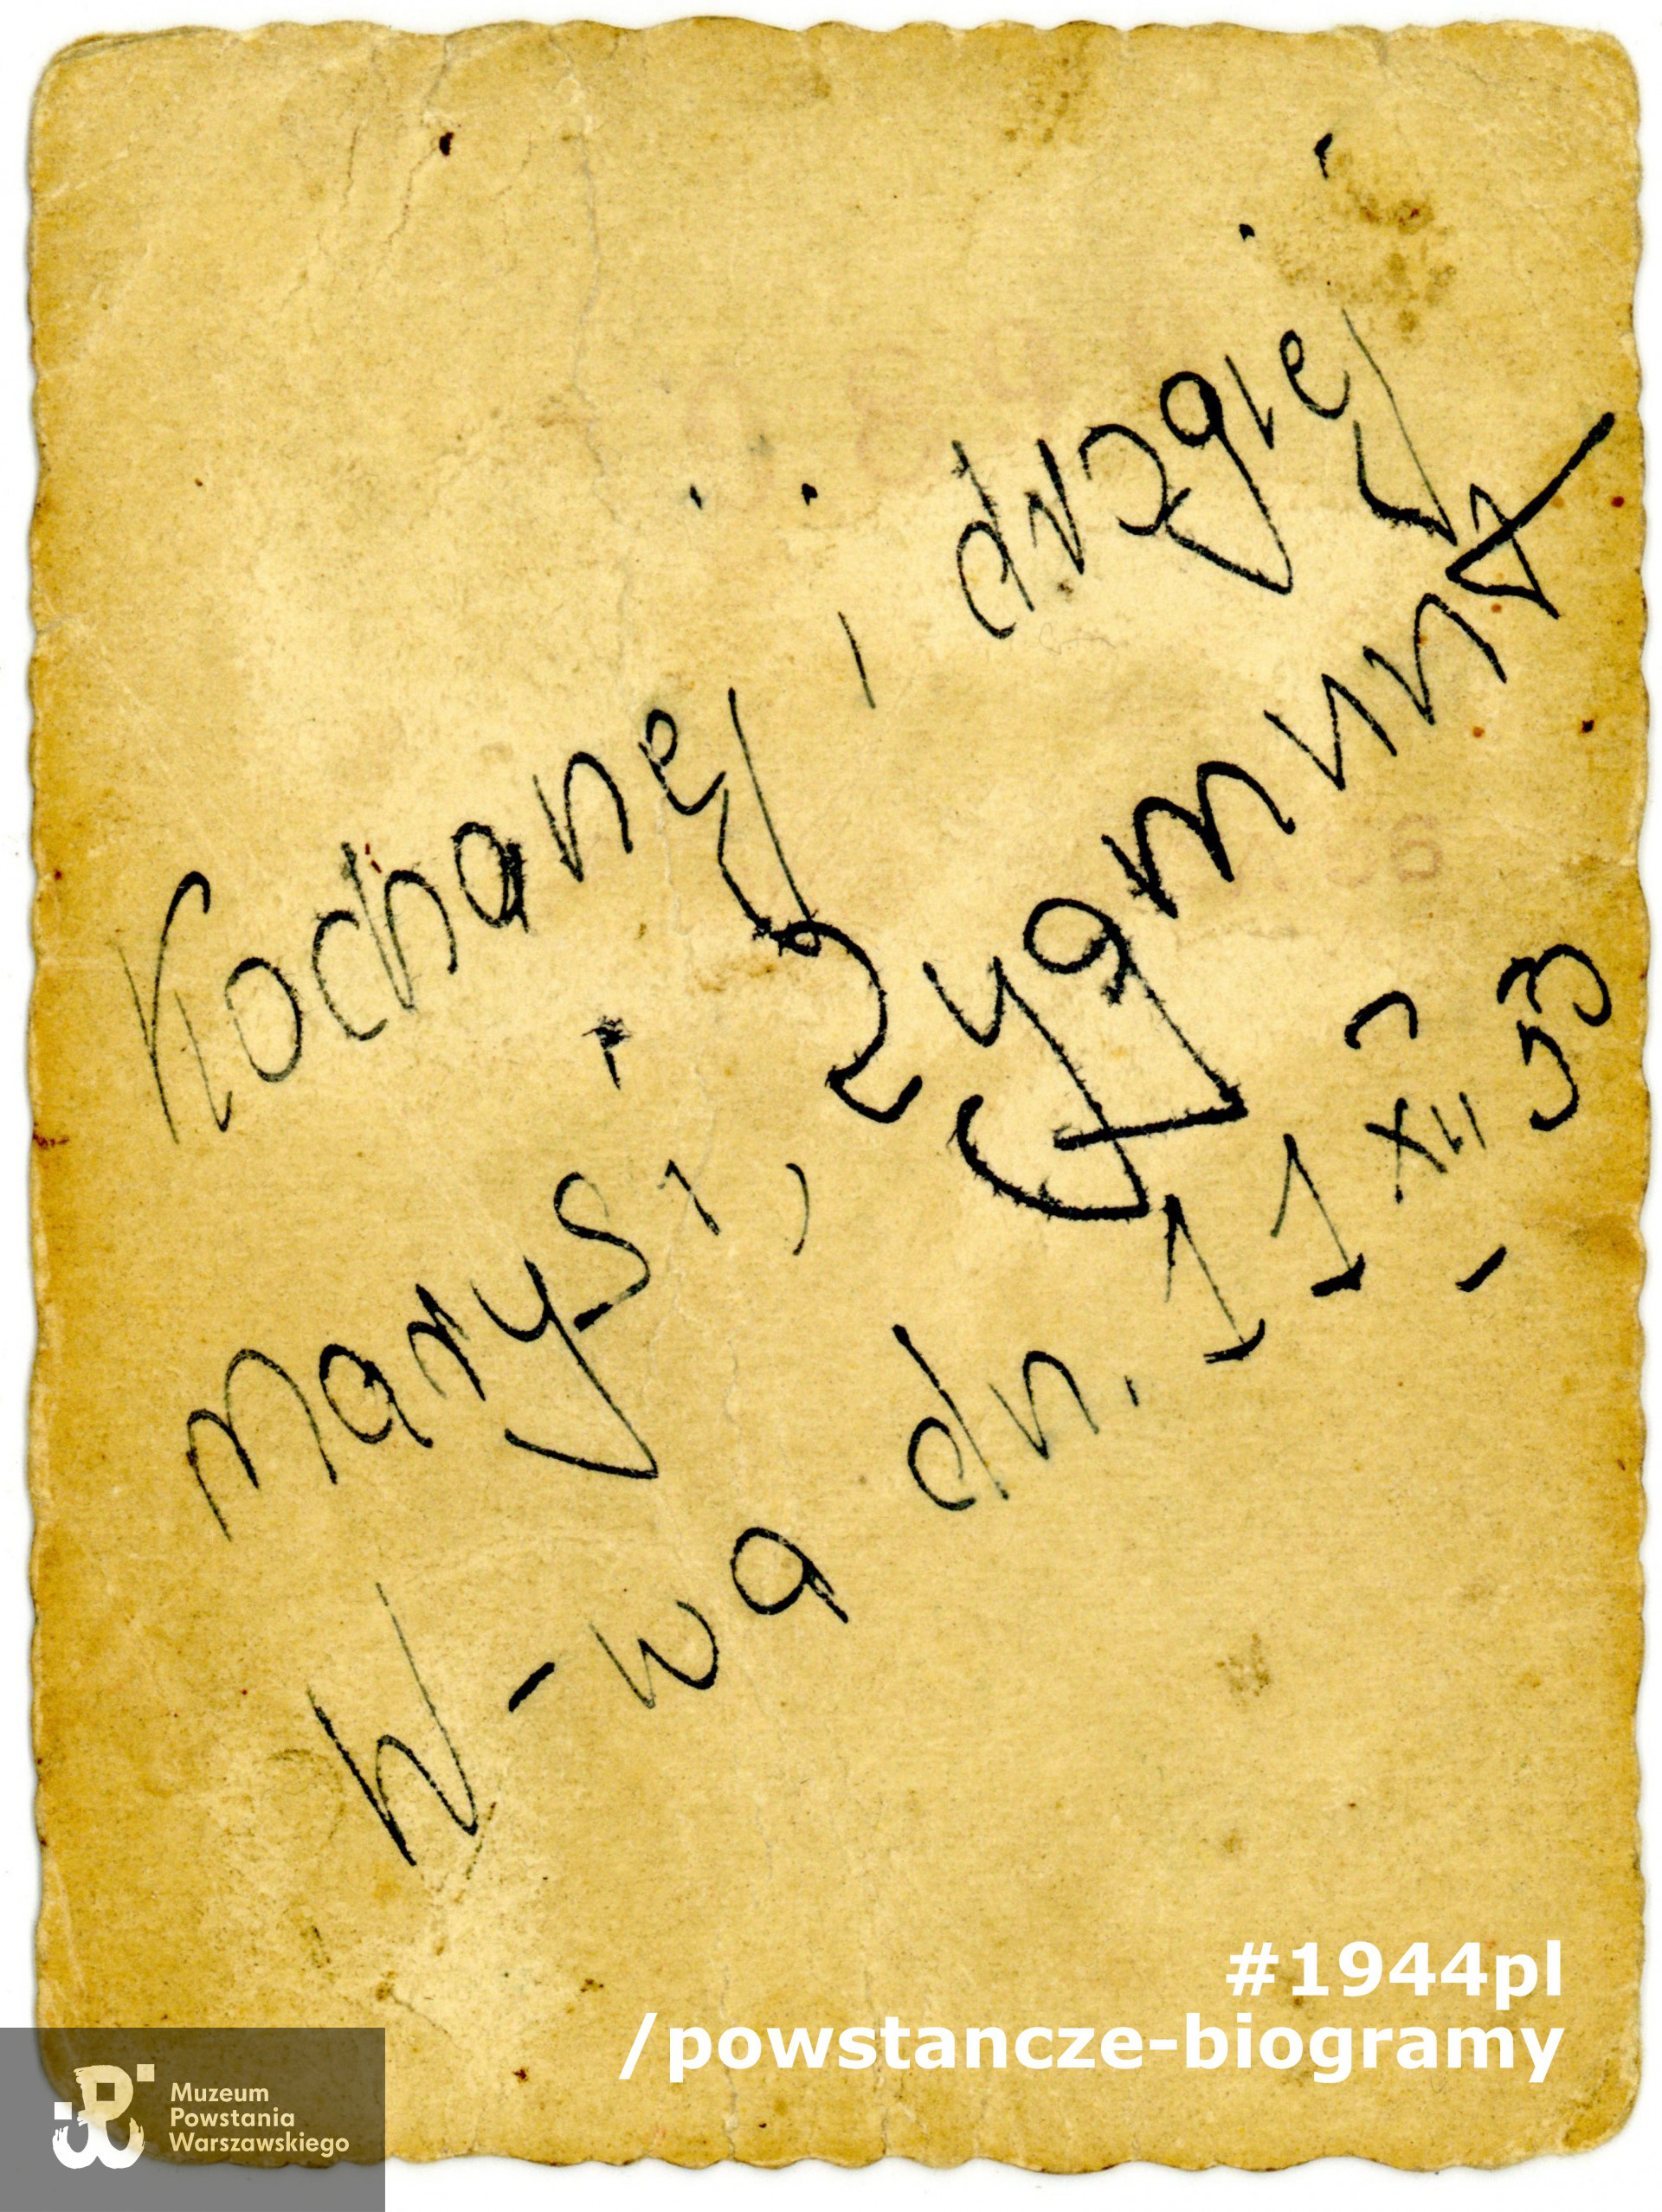 Kochanej i drogiej
Marysi, Zygmunt
W-wa dn. 11 XII -
#1944pl
/powstancze-biogramy
Muzeum
Powstania
Warszawskiego